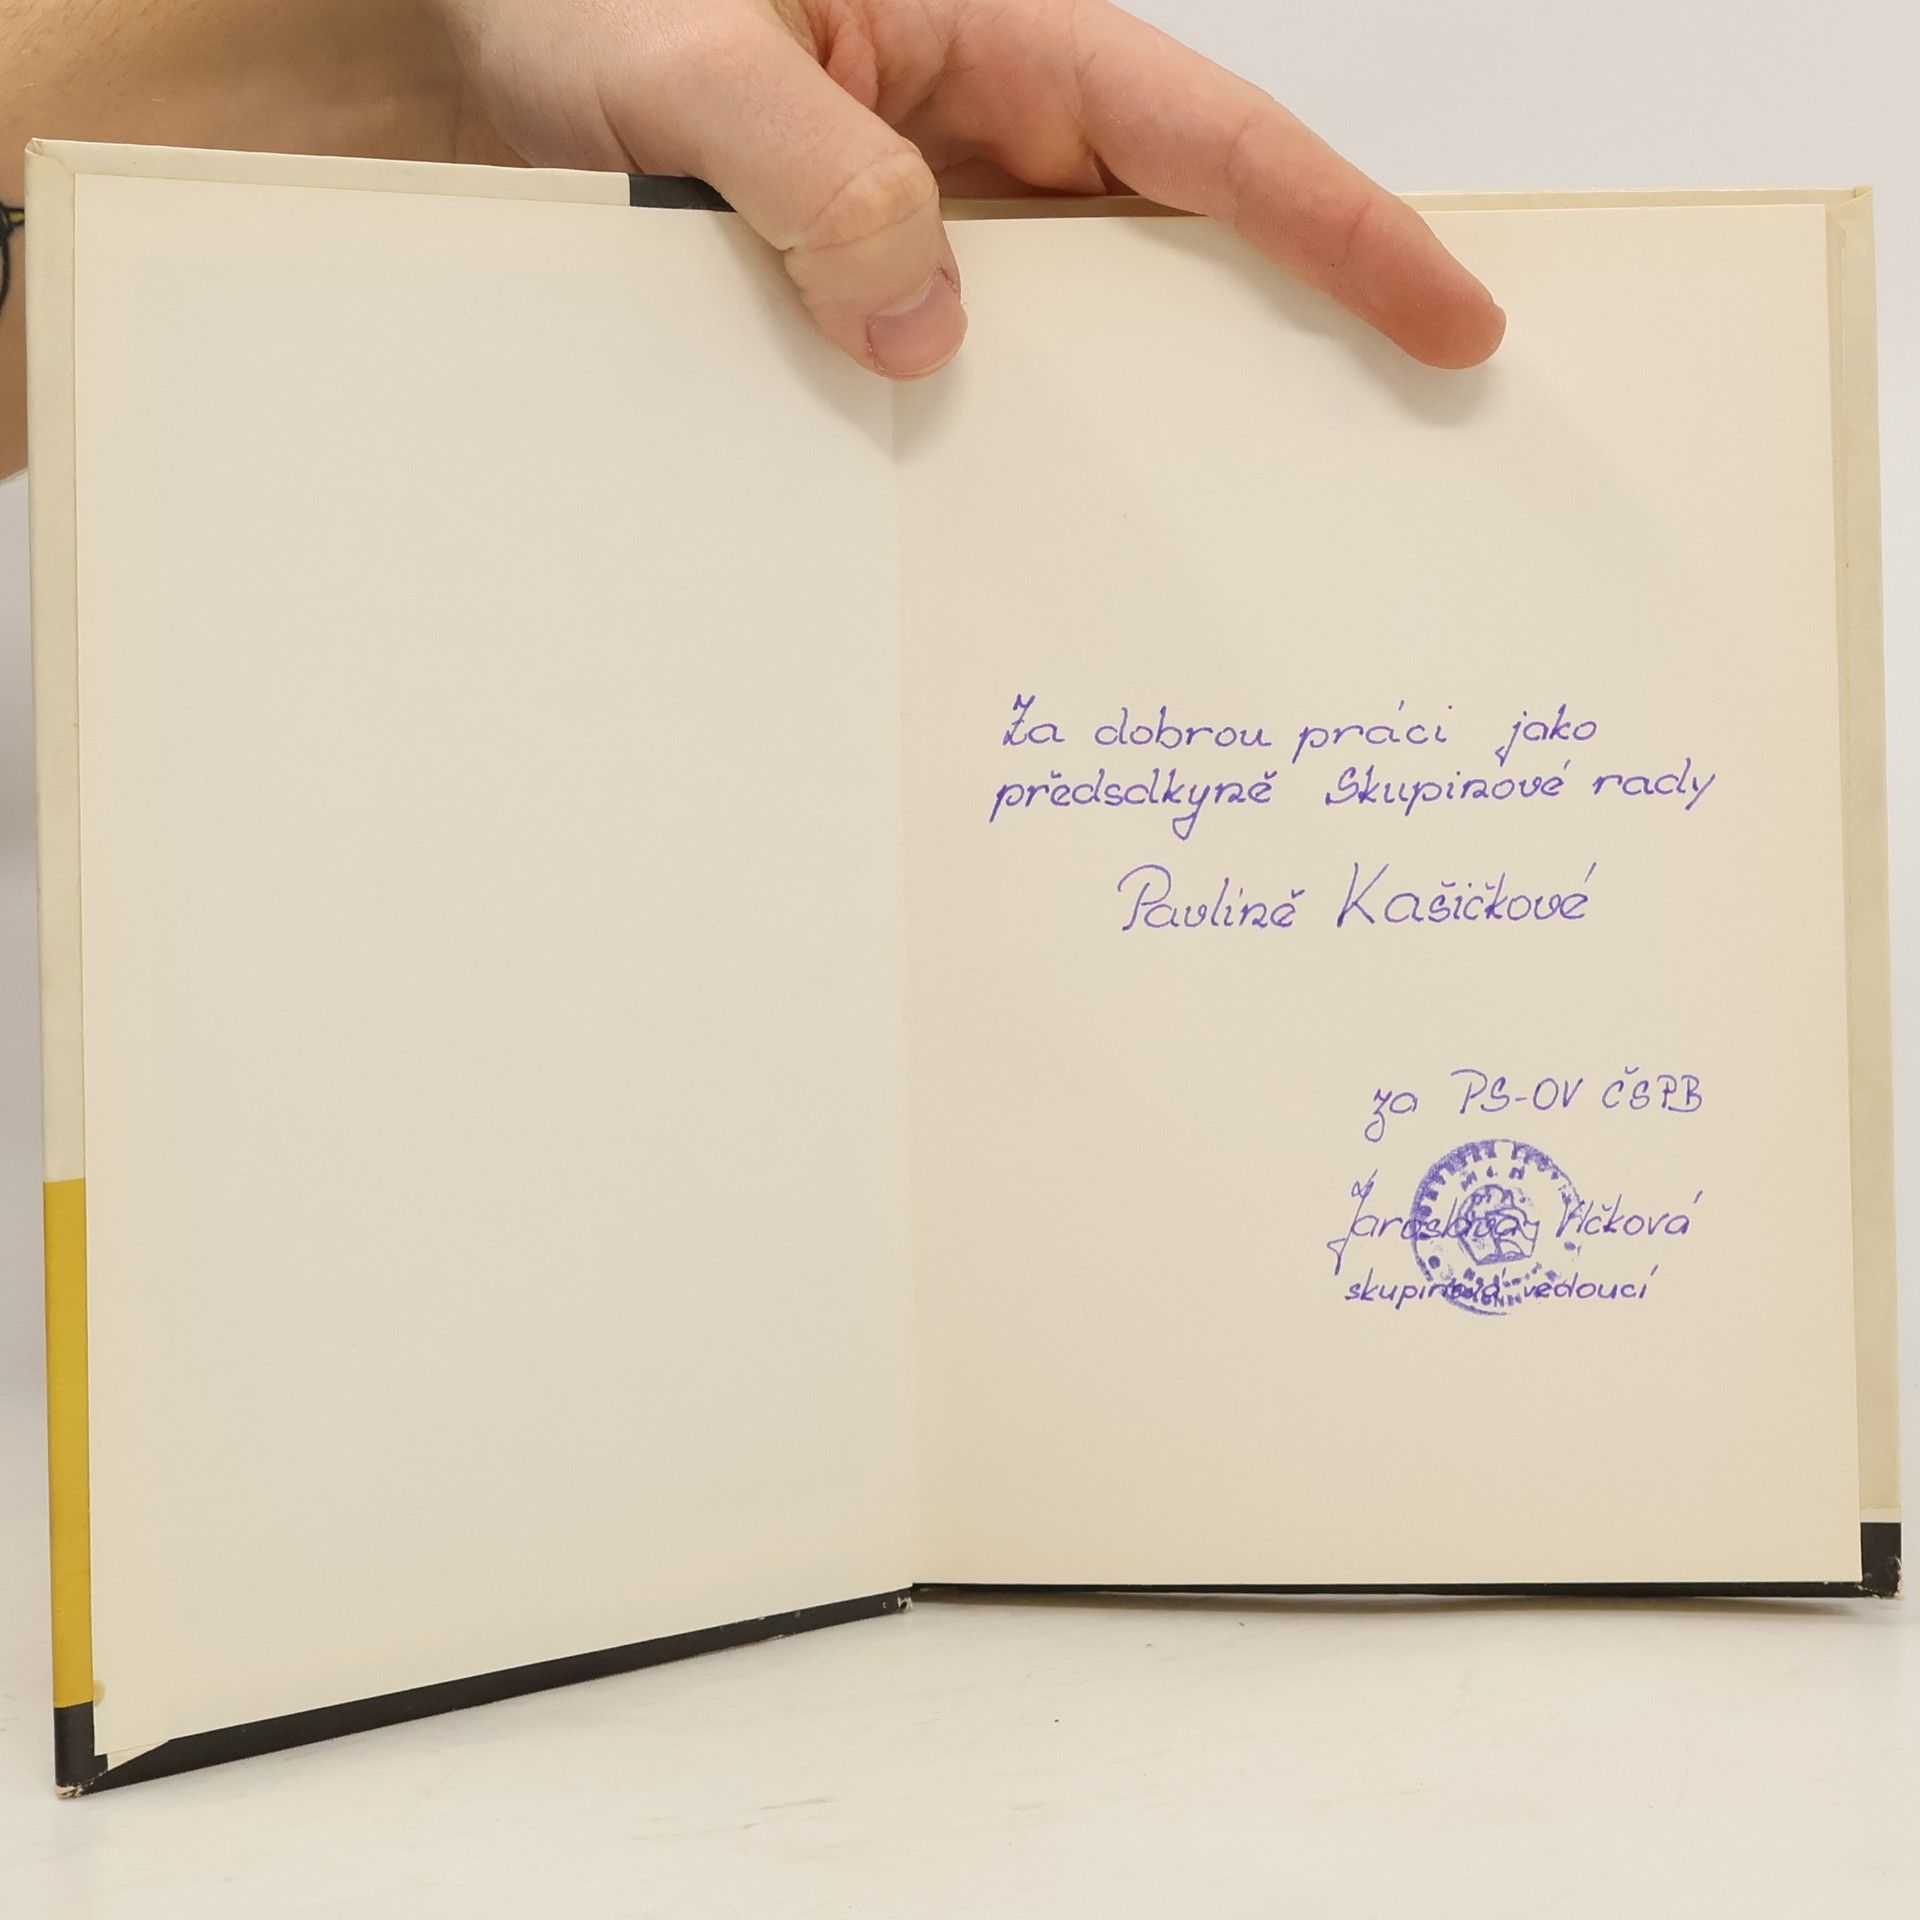 Za dobrou práci jako
předsdkyně Skupinové rady
Pavlíně Kašičkové
za PS-OV ČSPB
Jaroslava Vlčková
skupinová vedoucí